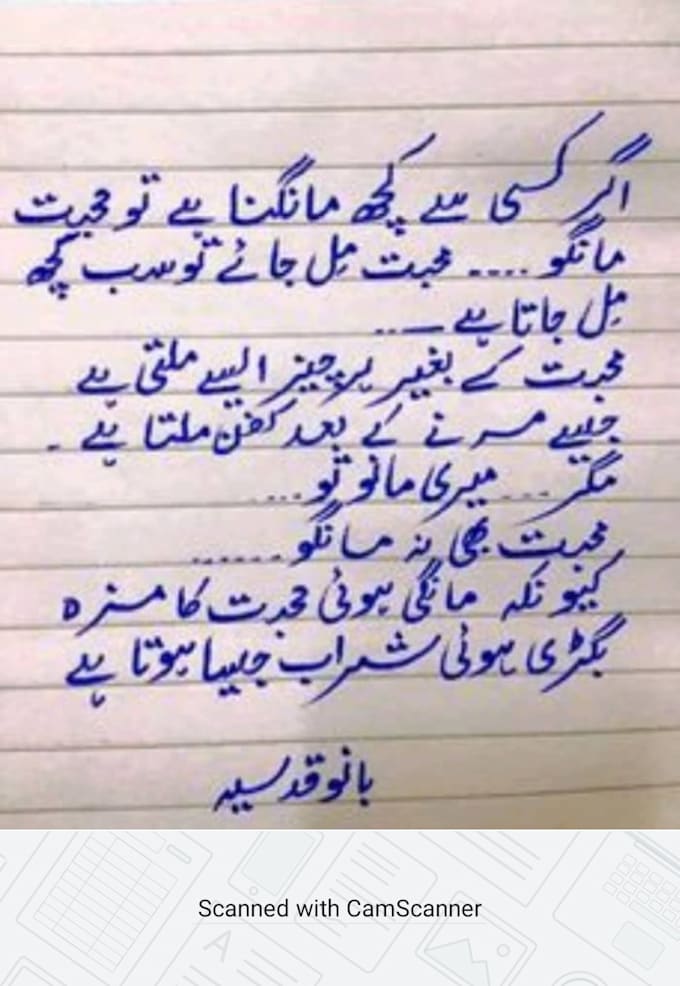 اگر کسی سے کچھ مانگنا ہے تو محبت
مانگو .... محبت مِل جائے تو سب کچھ
مِل جاتا ہے ــ ...
محبت کے بغیر ہر چیز ایسے ملتی ہے
جیسے مرنے کے بعد کفن ملتا ہے ۔
مگر ... میری مانو تو ....
محبت بھی نہ مانگو ......
کیونکہ مانگی ہوئی محبت کا مزہ
بگڑی ہوئی شراب جیسا ہوتا ہے
بانو قدسیہ
Scanned with CamScanner